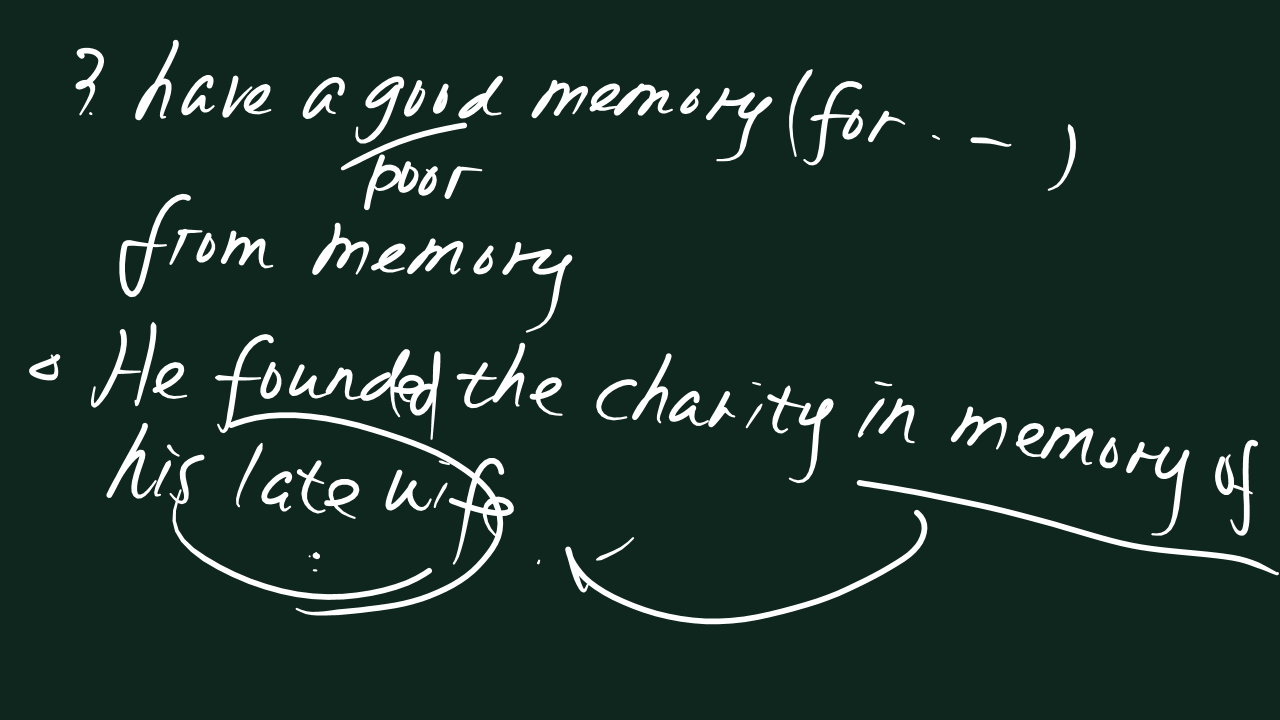 3. have a good memory (for . . — )
poor
from memory
He founded the charity in memory of
his late wife.